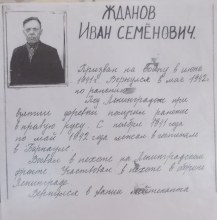 ЖДАНОВ
ИВАН СЕМЁНОВИЧ.
Призван на войну в июне
1941г. Вернулся в мае 1942г.
по ранению.
Под Ленинградом при
получил ранение
в правую руку. С ноября 1941 года
по май 1942 года лежал в госпитале
в Барнауле.
Воевал в пехоте на Ленинградском
фронте. Участвовал в обороне
Ленинграда.
Вернулся в звании лейтенанта